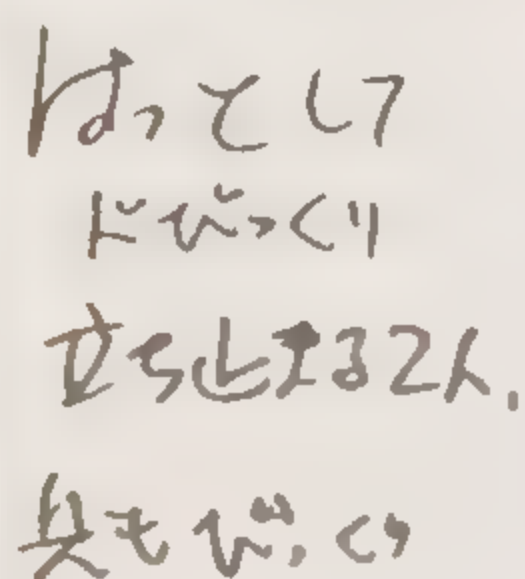 はっとして
ドびっくり
立ち止まる2人.
臭もびっくり